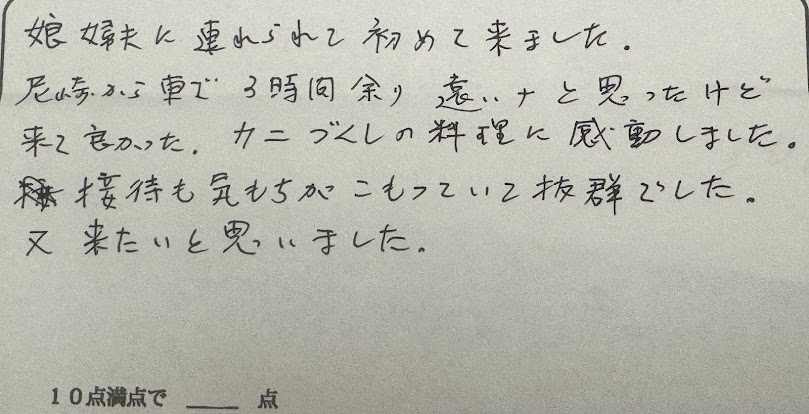 娘婦夫に連れられて初めて来ました。
尼崎から車で3時間余り遠いナと思ったけど
来て良かった。カニづくしの料理に感動しました。
接待も気もちがこもっていて抜群でした。
又来たいと思いました。
10点満点で ____ 点